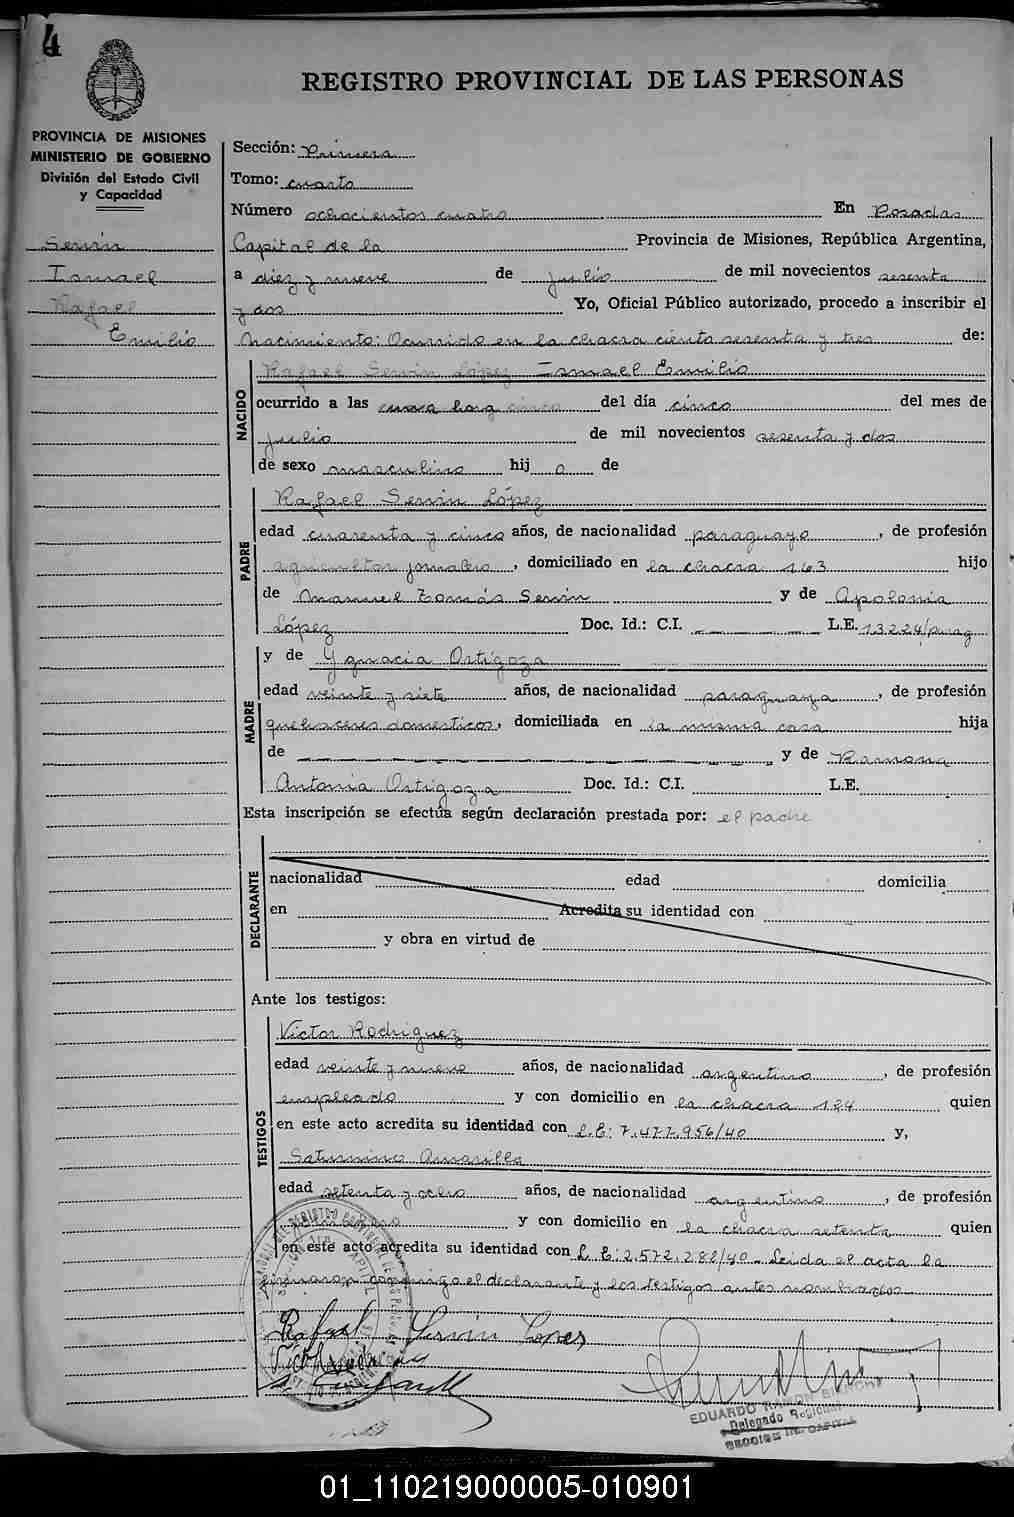 4
REGISTRO PROVINCIAL DE LAS PERSONAS
PROVINCIA DE MISIONES
MINISTERIO DE GOBIERNO
División del Estado Civil
y Capacidad
Servin
Ismael
Rafael
Emilio
Sección: Primera
Tomo: cuarto
Número ochocientos cuatro En Posadas
Capital de la Provincia de Misiones, República Argentina,
a diez y nueve de julio de mil novecientos sesenta
y dos Yo, Oficial Público autorizado, procedo a inscribir el
nacimiento: Ocurrido en la chacra ciento sesenta y tres de:
NACIDO
Rafael Servin López Ismael Emilio
ocurrido a las cinco del día cinco del mes de
julio de mil novecientos sesenta y dos
de sexo masculino hij o de
PADRE
Rafael Servin López
edad cuarenta y cinco años, de nacionalidad paraguayo, de profesión
agricultor jornalero, domiciliado en la chacra 163 hijo
de Manuel Tomás Servin y de Apolonia
López Doc. Id.: C.I. L.E. 13224/parag
MADRE
y de Ygnacia Ortigoza
edad veinte y siete años, de nacionalidad paraguaya, de profesión
quehaceres domesticos, domiciliada en la misma casa hija
de y de Ramona
Antonia Ortigoza Doc. Id.: C.I. L.E.
Esta inscripción se efectúa según declaración prestada por: el padre
DECLARANTE
nacionalidad edad domicilia
en Acredita su identidad con
y obra en virtud de
Ante los testigos:
TESTIGOS
Victor Rodriguez
edad veinte y nueve años, de nacionalidad argentino, de profesión
empleado y con domicilio en la chacra 124 quien
en este acto acredita su identidad con L.E: 7.477.956/40 y,
Saturnino Amarilla
edad setenta y ocho años, de nacionalidad argentino, de profesión
y con domicilio en la chacra setenta quien
en este acto acredita su identidad con L.E: 2.572.282/40. Leida el acta la
firmaron conmigo el declarante y los testigos antes nombrados
Rafael Servin Lopes
EDUARDO RAMON BIANCHI
Delegado Regional
SECCION 1ra. CAPITAL
01_110219000005-010901